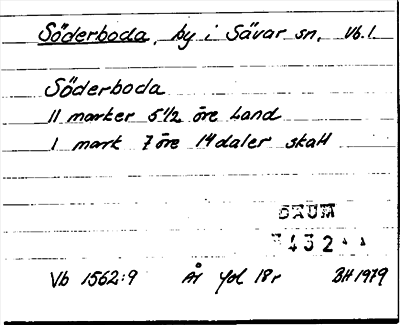 Söderboda, by i Sävar sn, Vb.l.
Söderboda
11 marker 5 1/2 öre Land
1 mark 7 öre 14 daler skatt
DAUM
3432
Vb 1562:9 År Jol 18 r BH 1979